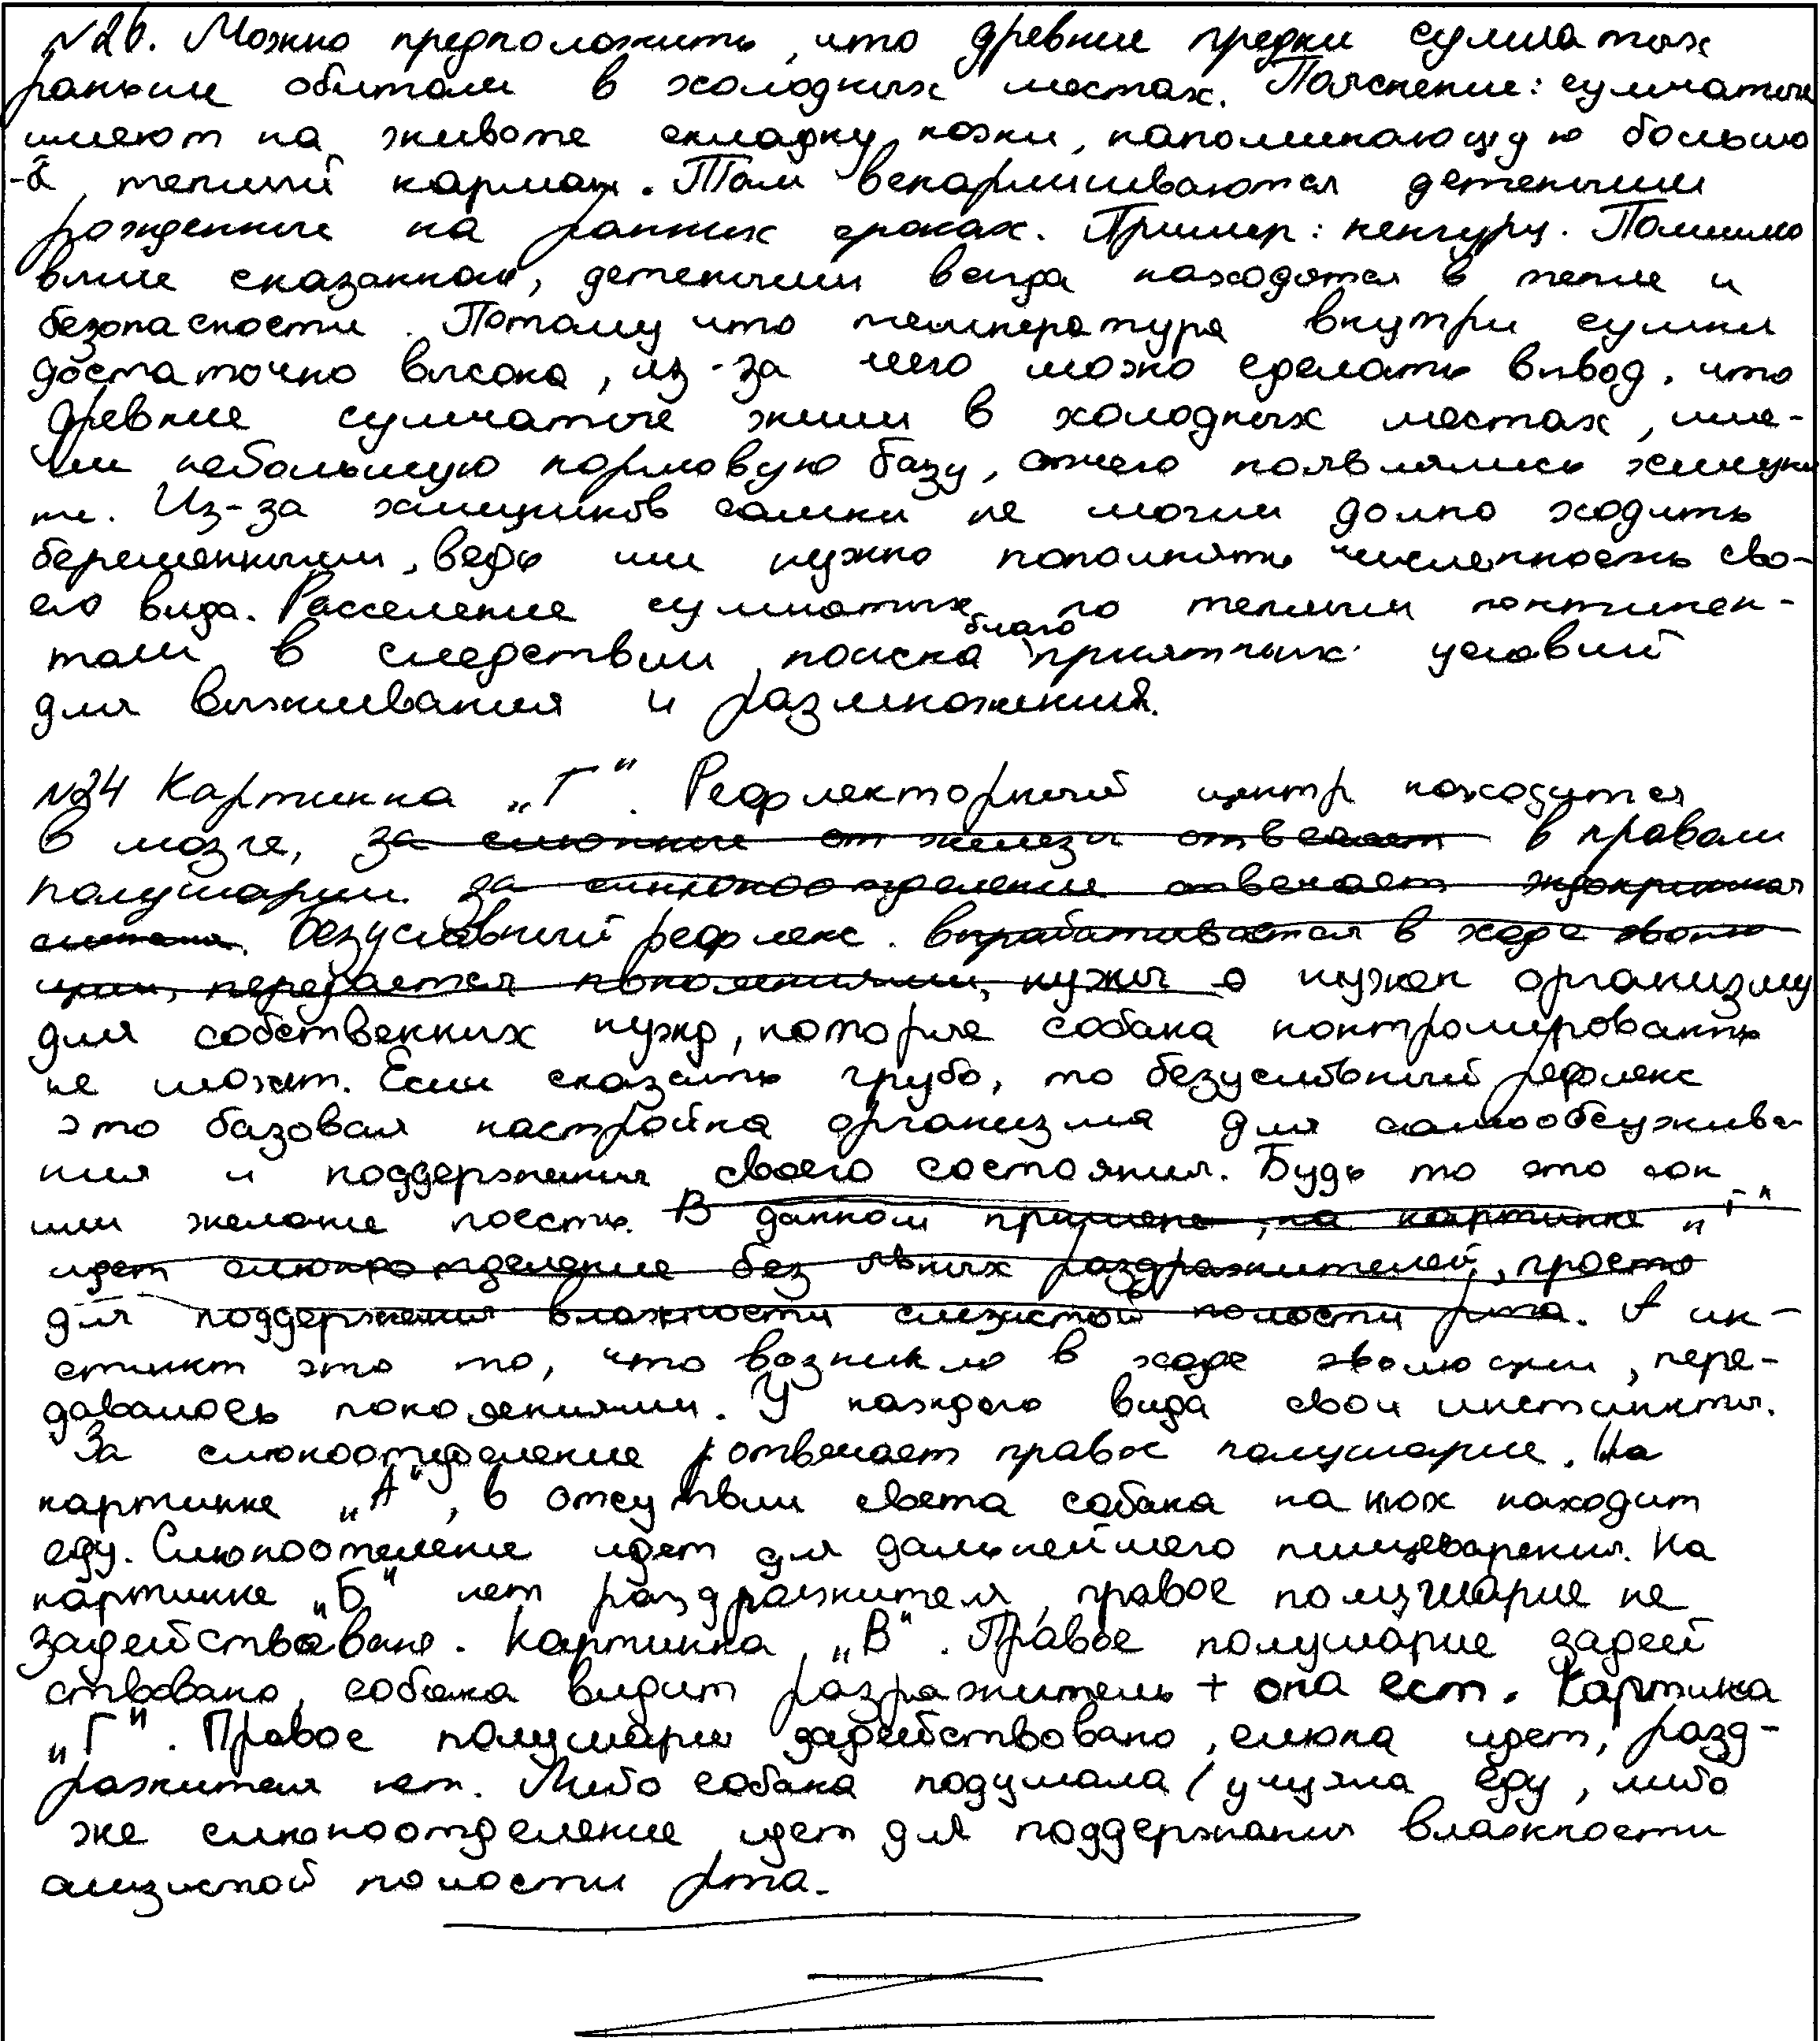 №26. Можно предположить, что древние предки сумчатых
раньше обитали в холодных местах. Пояснение: сумчатые
имеют на животе складку кожи, напоминающую большо
-й, теплый карман. Там вскармливаются детеныши
рожденные на ранних сроках. Пример: кенгуру. Помимо
выше сказанного, детеныши всегда находятся в тепле и
безопасности. Потому что температура внутри сумки
достаточно высока, из-за чего можо сделать вывод, что
древние сумчатые жили в холодных местах, име-
ли небольшую кормовую базу, отчего появлялись
Из-за хищников самки не могли долго ходить
беременными, ведь им нужно пополнять численность сво-
его вида. Расселение сумчатых по теплым континен-
там в следствии поиска благоприятных условий
для выживания и размножения.
№24 Картинка „Г". Рефлекторный центр находится
в мозге, за слюнные от железы отвечает в правом
полушарии. за слюноотделение отвечает эндокринная
система. Безусловный рефлекс. вырабатывается в ходе эволю
ции, передается поколениями, нужны о нужен организму
для собственных нужд, которые собака контролировать
не может. Если сказать грубо, то безусловный рефлекс
это базовая настройка организма для самообслужива
ния и поддержания своего состояния. Будь то это сон
или желание поесть. В данном примере, на картинке „Г"
идет слюноотделение без явных раздражителей, просто
для поддержения влажности слизистой полости рта. А ин-
стинкт это то, что возникло в ходе эволюции, пере-
давалось поколениями. У каждого вида свои инстинкты.
За слюноотделение отвечает правое полушарие. На
картинке „А", в отсутвии света собака на нюх находит
еду. Слюноотеление идет для дальнейшего пищеварения. На
картинке „Б" нет раздражителя, правое полушарие не
задействовано. Картинка „В". Правое полушарие задей
ствовано, собака видит разражитель + она ест. Картика
„Г". Правое полушарие задействовано, слюна идет, разд-
ражителя нет. Либо собака подумала/учуяла еду, либо
же слюноотделение идет для поддержания влажности
слизистой полости рта.